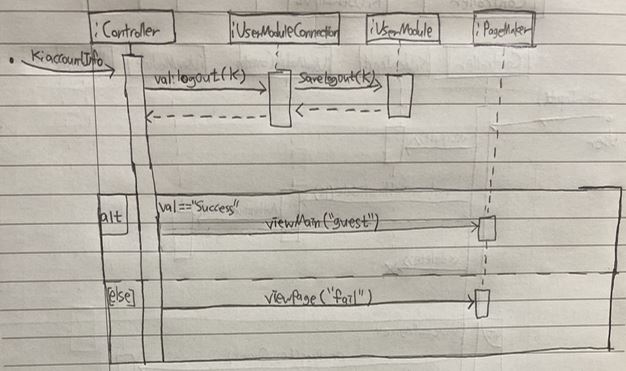 :Controller
:UserModuleConnection
:UserModule
:PageMaker
K:accountInfo
val:logout(K)
savelogout(K)
alt
val=="Success"
viewMain("guest")
[else]
viewPage("fail")